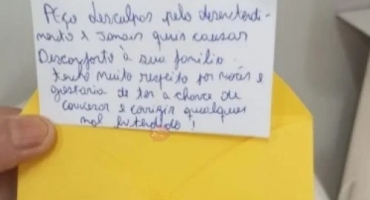 Peço desculpas pelo desentendi-
mento e jamais quis causar
Desconforto à sua família.
tenho muito respeito por vocês e
gostaria de ter a chance de
conversar e corrigir qualquer
mal entendido!